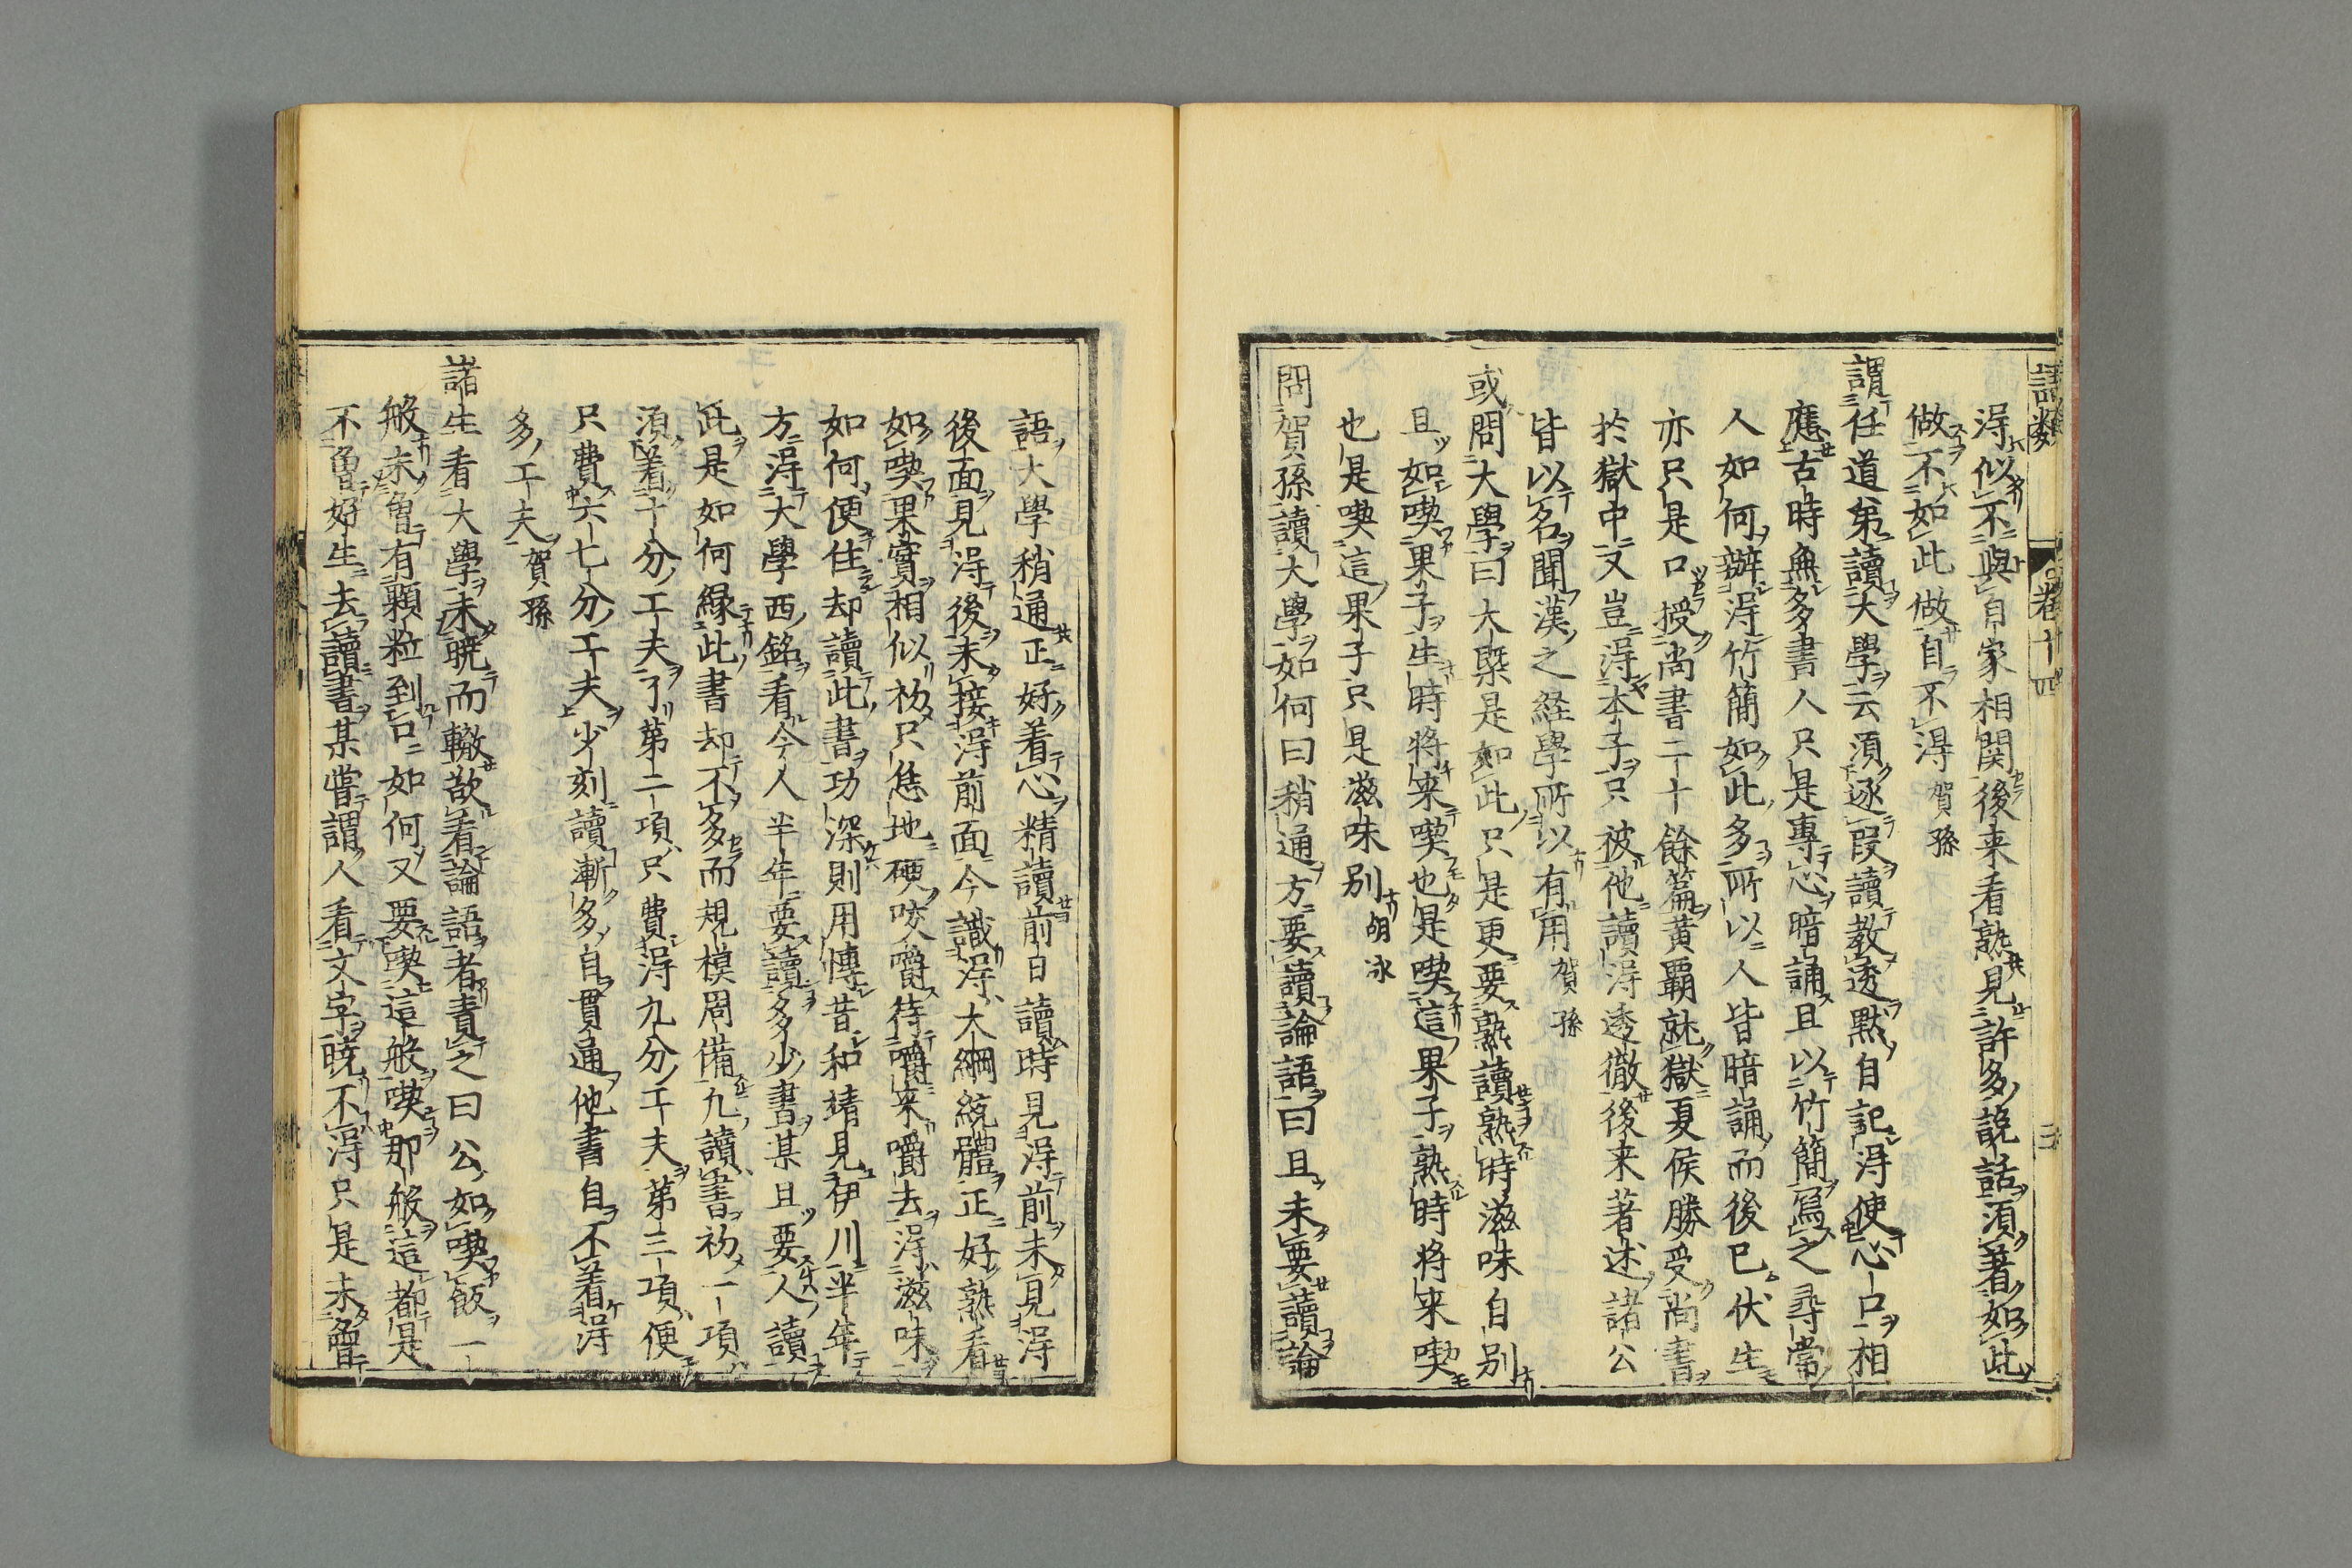 語類 卷十四 三
淂似不與自家相関後来看熟見許多說話須著如此
做不如此做自不淂賀孫
謂任道弟讀大學云須逐段讀教透黙自記淂使心口相
應古時無多書人只是專心暗誦且以竹簡寫之尋常
人如何辦淂竹簡如此多所以人皆暗誦而後已伏生
亦只是口授尚書二十餘篇黄覇就獄夏侯勝受尚書
於獄中又豈淂本子只被他讀淂透徹後来著述諸公
皆以名聞漢之経學所以有用賀孫
或問大學曰大槩是如此只是更要熟讀熟時滋味自别
且如喫果子生時将来喫也是喫這果子熟時将来喫
也是喫這果子只是滋味别胡泳
問賀孫讀大學如何曰稍通方要讀論語曰且未要讀論
語大學稍通正好着心精讀前日讀時見淂前未見淂
後面見淂後未接淂前面今識淂大綱統體正好熟看
如喫果實相似初只恁地硬咬嚼待嚼来嚼去淂滋味
如何便住却讀此書功深則用愽昔和靖見伊川半年
方淂大學西銘看今人半年要讀多少書某且要人讀
此是如何縁此書却不多而規模周備凢讀書初一項
須着十分工夫了第二項只費淂九分工夫第三項便
只費六七分工夫少刻讀漸多自貫通他書自不着淂
多工夫賀孫
諸生看大學未暁而輙欲着論語者責之曰公如喫飯一
般未曽有顆粒到口如何又要喫這般喫那般這都是
不曽好生去讀書某嘗謂人看文字暁不淂只是未曽